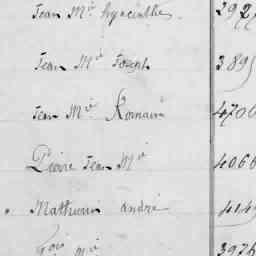 Jean Mie hyacinthe 292
Jean Mie Joseph 389
Jean Mie Romain 4700
Pierre Jean Mie 4066
Mathurin andré
fois Mie 3976